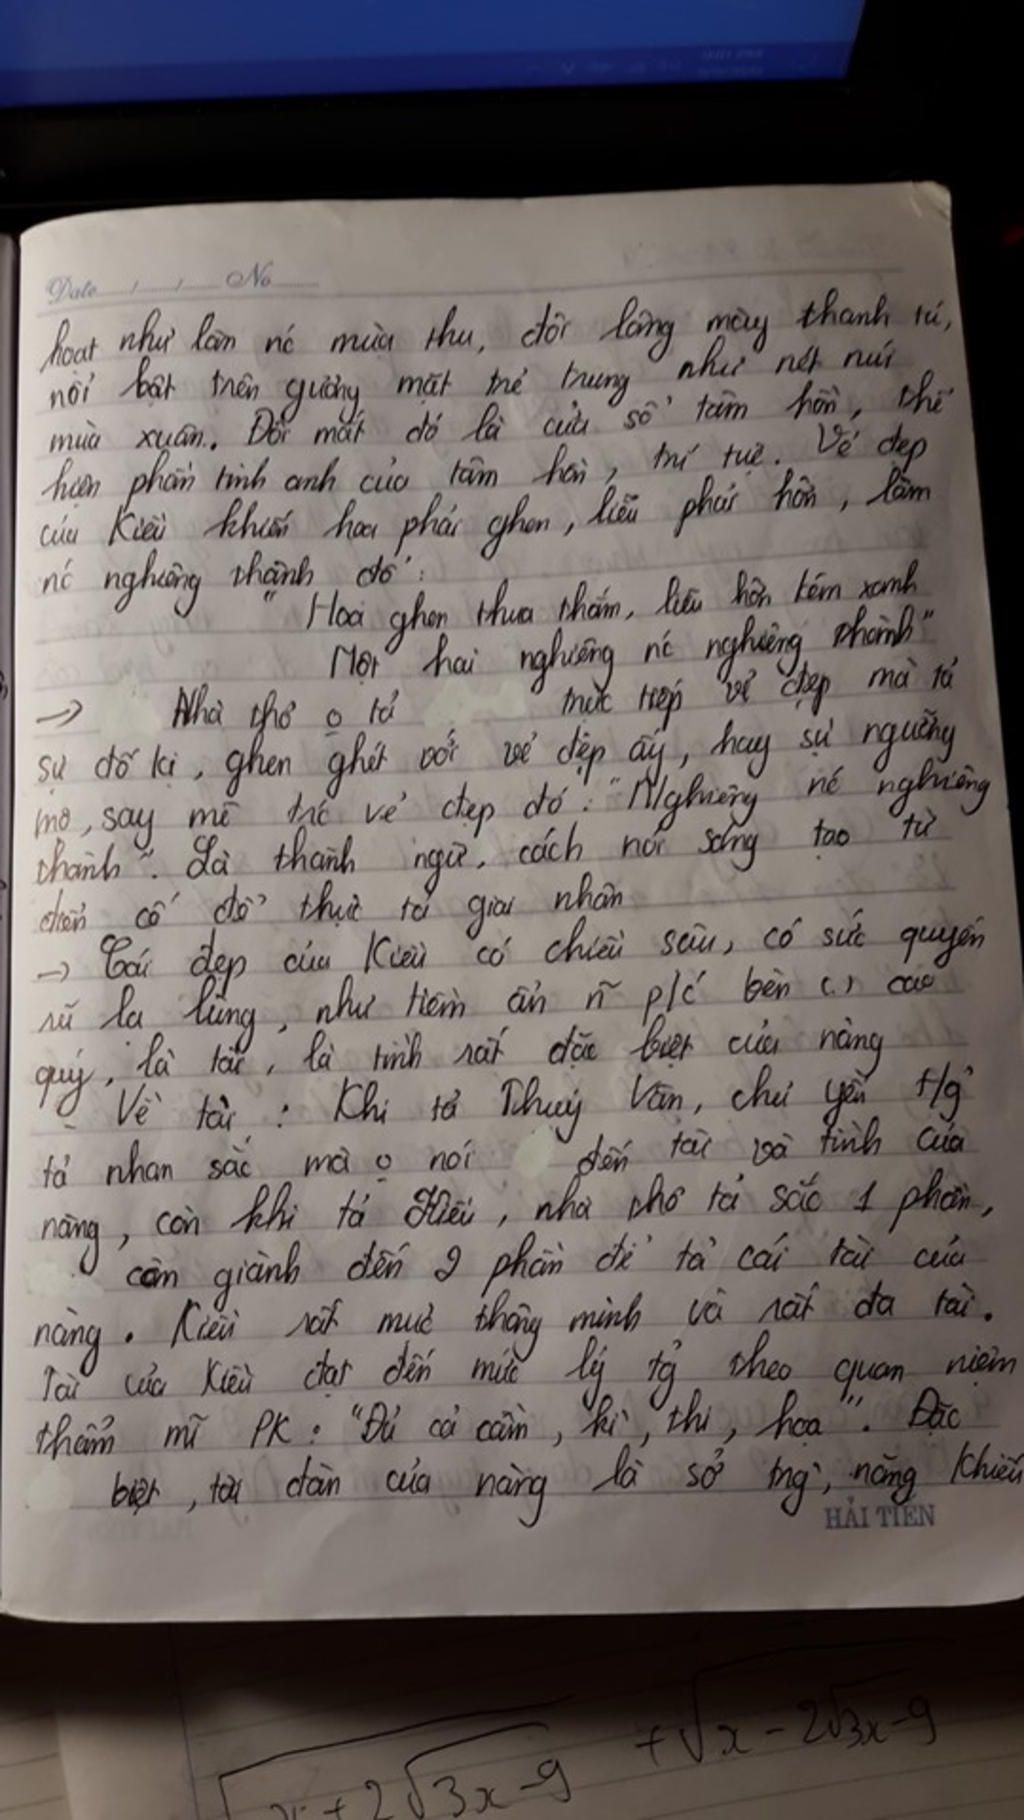 Date / / No
hoạt như làn nc mùa thu, đôi lông mày thanh tú,
nổi bật trên gương mặt trẻ trung như nét núi
mùa xuân. Đôi mắt đó là cửa sổ tâm hồn, thể
hiện phần tinh anh của tâm hồn, trí tuệ. Vẻ đẹp
của Kiều khiến hoa phải ghen, liễu phải hờn, làm
nc nghiêng thành đổ:
"Hoa ghen thua thắm, liễu hờn kém xanh
Một hai nghiêng nc nghiêng thành"
→ Nhà thơ o tả trực tiếp vẻ đẹp mà tả
sự đố kị, ghen ghét với vẻ đẹp ấy, hay sự ngưỡng
mộ, say mê trc vẻ đẹp đó. "Nghiêng nc nghiêng
thành". Là thành ngữ, cách nói sáng tạo từ
điển cố để thực tả giai nhân
→ Cái đẹp của Kiều có chiều sâu, có sức quyến
rũ lạ lùng, như tiềm ẩn n~ p/c bên () cao
quý, là tài, là tình rất đặc biệt của nàng
- Về tài: Khi tả Thuý Vân, chủ yếu t/g
tả nhan sắc mà o nói đến tài và tình của
nàng, còn khi tả Kiều, nhà thơ tả sắc 1 phần,
còn giành đến 2 phần để tả cái tài của
nàng. Kiều rất mực thông minh và rất đa tài.
Tài của Kiều đạt đến mức lý tg̉ theo quan niệm
thẩm mĩ PK: "Đủ cả cầm, kì, thi, hoạ". Đặc
biệt, tài đàn của nàng là sở trg`, năng khiếu
HẢI TIẾN
+ √x - 2√3x-9
√x + 2√3x-9